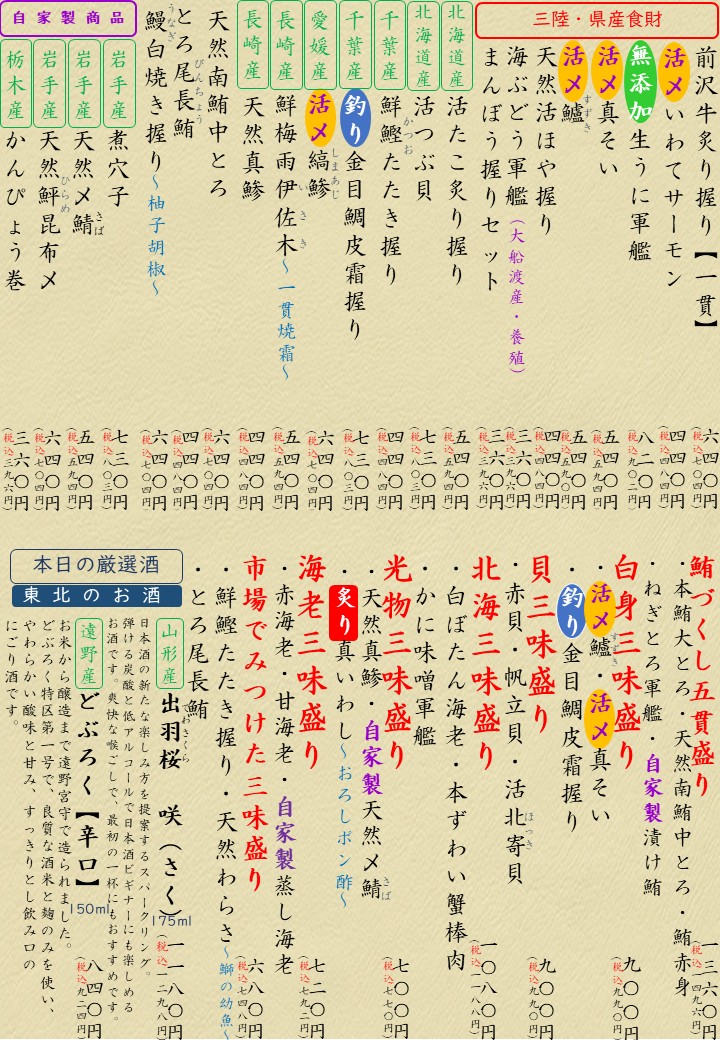 三陸・県産食財
前沢牛炙り握り【一貫】 六四〇円 (税込七〇四円)
活〆いわてサーモン 四四〇円 (税込四八四円)
無添加生うに軍艦 八二〇円 (税込九〇二円)
活〆真そい 五四〇円 (税込五九四円)
活〆鱸 すずき 五四〇円
天然活ほや握り 四四〇円 (税込四八四円)
海ぶどう軍艦(大船渡産・養殖) 三六〇円 (税込三九六円)
まんぼう握りセット 三六〇円 (税込三九六円)
北海道産 活たこ炙り握り 五四〇円 (税込五九四円)
北海道産 活つぶ貝 七三〇円 (税込八〇三円)
千葉産 鮮鰹たたき握り かつお 四四〇円 (税込四八四円)
千葉産 釣り金目鯛皮霜握り 七三〇円 (税込八〇三円)
愛媛産 活〆縞鯵 しまあじ 六四〇円 (税込七〇四円)
長崎産 鮮梅雨伊佐木〜一貫焼霜〜 いさき 五四〇円 (税込五九四円)
長崎産 天然真鯵 四四〇円 (税込四八四円)
天然南鮪中とろ 六四〇円 (税込七〇四円)
とろ尾長鮪 びんちょう 四四〇円 (税込四八四円)
鰻白焼き握り〜柚子胡椒〜 うなぎ 六四〇円 (税込七〇四円)
自家製商品
岩手産 煮穴子 七三〇円 (税込八〇三円)
岩手産 天然〆鯖 さば 五四〇円 (税込五九四円)
岩手産 天然鮃昆布〆 ひらめ 六四〇円 (税込七〇四円)
栃木産 かんぴょう巻 三六〇円 (税込三九六円)
鮪づくし五貫盛り 一三六〇円 (税込一四九六円)
・本鮪大とろ・天然南鮪中とろ・鮪赤身
・ねぎとろ軍艦・自家製漬け鮪
白身三味盛り 九〇〇円 (税込九九〇円)
・活〆鱸・活〆真そい すずき
・釣り金目鯛皮霜握り
貝三味盛り 九〇〇円 (税込九九〇円)
・赤貝・帆立貝・活北寄貝 ほっき
北海三味盛り 一〇八〇円 (税込一一八八円)
・白ぼたん海老・本ずわい蟹棒肉
・かに味噌軍艦
光物三味盛り 七〇〇円 (税込七七〇円)
・天然真鯵・自家製天然〆鯖 さば
・炙り真いわし〜おろしポン酢〜
海老三味盛り 七二〇円 (税込七九二円)
・赤海老・甘海老・自家製蒸し海老
市場でみつけた三味盛り 六八〇円 (税込七四八円)
・鮮鰹たたき握り・天然わらさ〜鰤の幼魚〜
・とろ尾長鮪
本日の厳選酒
東北のお酒
山形産 出羽桜 咲(さく) でわさくら 175ml 一一八〇円 (税込一二九八円)
日本酒の新たな楽しみ方を提案するスパークリング。
弾ける炭酸と低アルコールで日本酒ビギナーにも楽しめる
お酒です。爽快な喉ごしで、最初の一杯にもおすすめです。
遠野産 どぶろく【辛口】 150ml 八四〇円 (税込九二四円)
お米から醸造まで遠野宮守で造られました。
どぶろく特区第一号で、良質な酒米と麹のみを使い、
やわらかい酸味と甘み、すっきりとし飲み口の
にごり酒です。